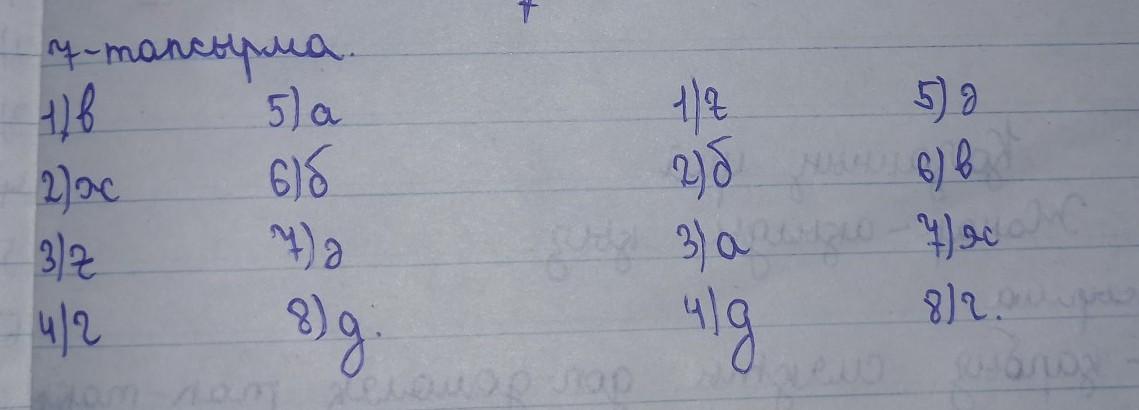 7-тапсырма.
1) в 5) а 1) ғ 5) ә
2) ж 6) б 2) б 6) в
3) ғ 7) ә 3) а 7) ж
4) г 8) д. 4) д 8) г.